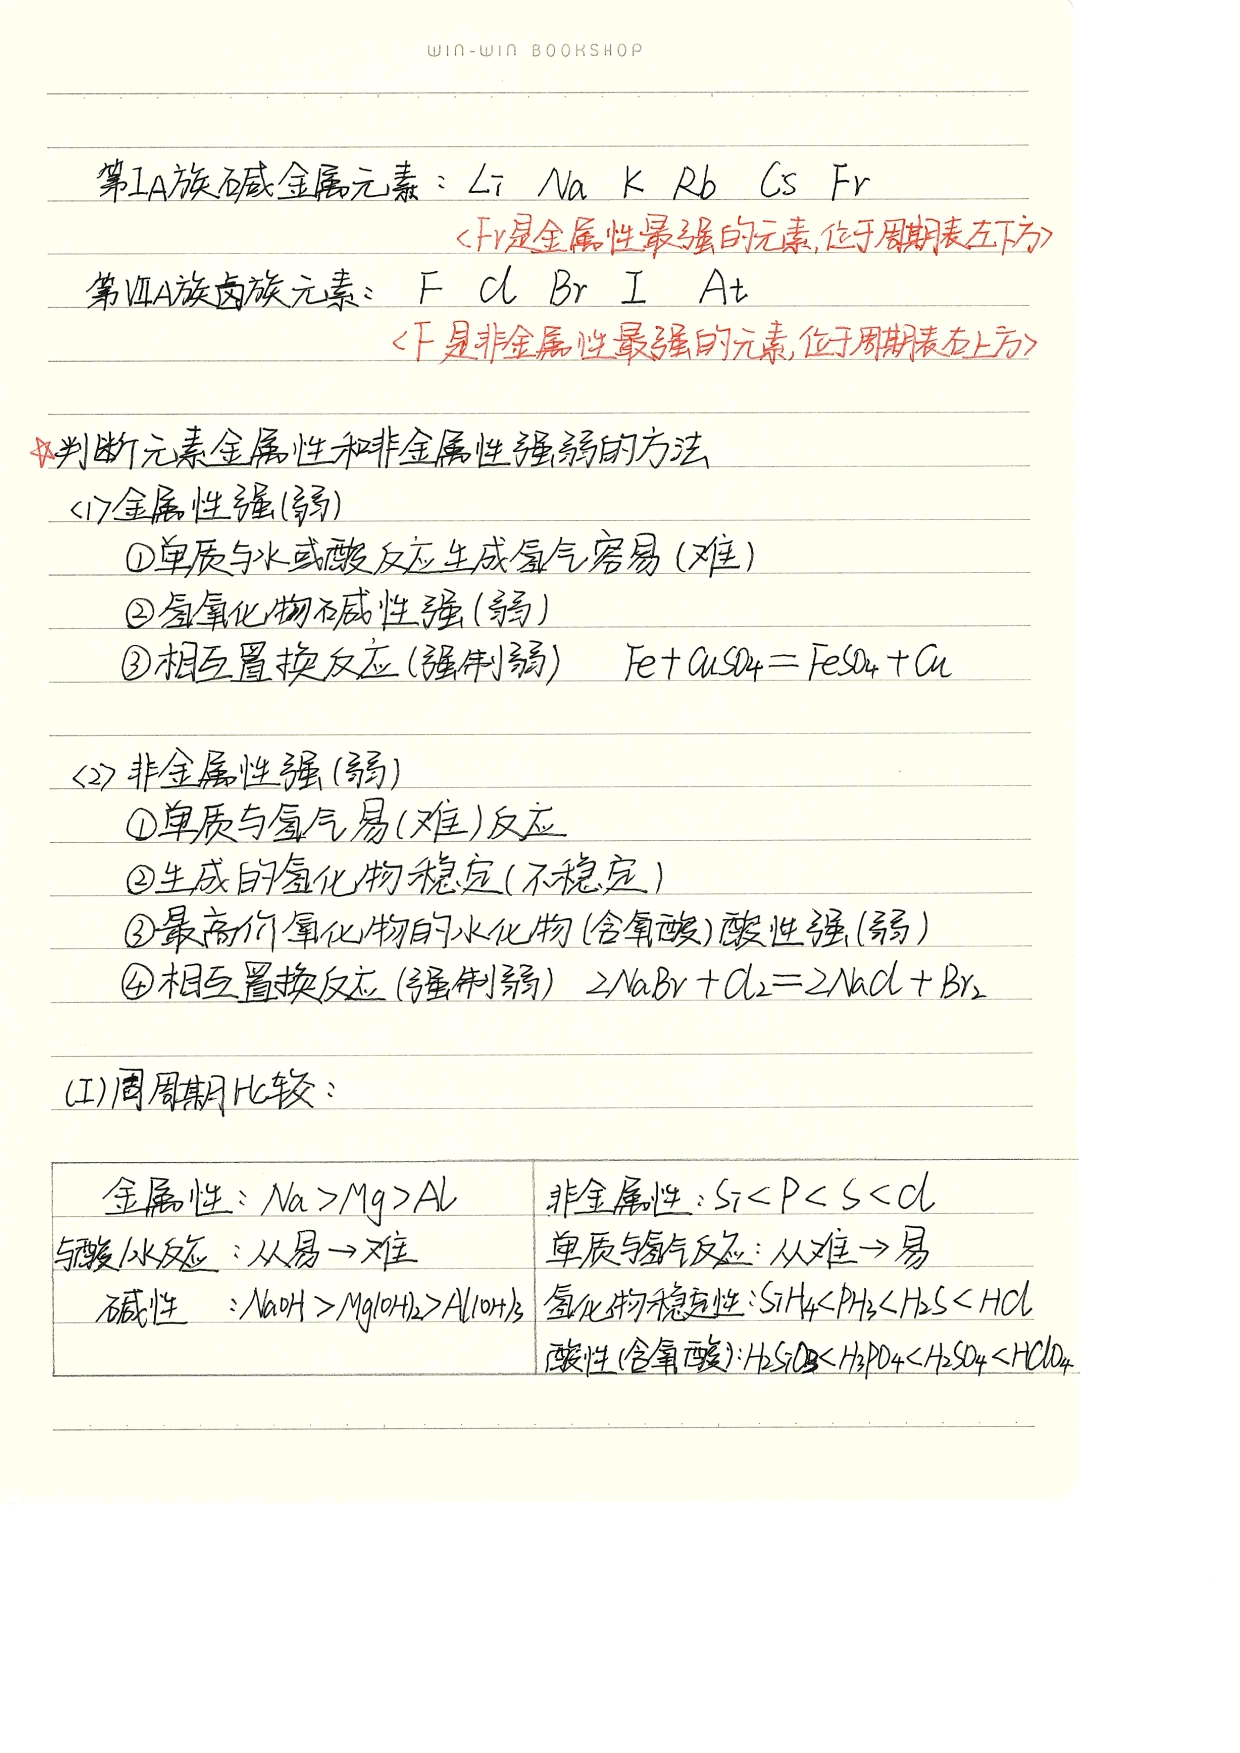 WIN-WIN BOOKSHOP
第IA族碱金属元素：Li Na K Rb Cs Fr
<Fr是金属性最强的元素,位于周期表左下方>
第ⅦA族卤族元素： F Cl Br I At
<F是非金属性最强的元素,位于周期表右上方>
☆判断元素金属性和非金属性强弱的方法
<1>金属性强(弱)
①单质与水或酸反应生成氢气容易(难)
②氢氧化物碱性强(弱)
③相互置换反应(强制弱) Fe+CuSO4=FeSO4+Cu
<2>非金属性强(弱)
①单质与氢气易(难)反应
②生成的氢化物稳定(不稳定)
③最高价氧化物的水化物(含氧酸)酸性强(弱)
④相互置换反应(强制弱) 2NaBr+Cl2=2NaCl+Br2
(I)同周期比较：
金属性：Na>Mg>Al 非金属性：Si<P<S<Cl
与酸/水反应：从易→难 单质与氢气反应：从难→易
碱性 ：NaOH>Mg(OH)2>Al(OH)3 氢化物稳定性：SiH4<PH3<H2S<HCl
酸性(含氧酸)：H2SiO3<H3PO4<H2SO4<HClO4